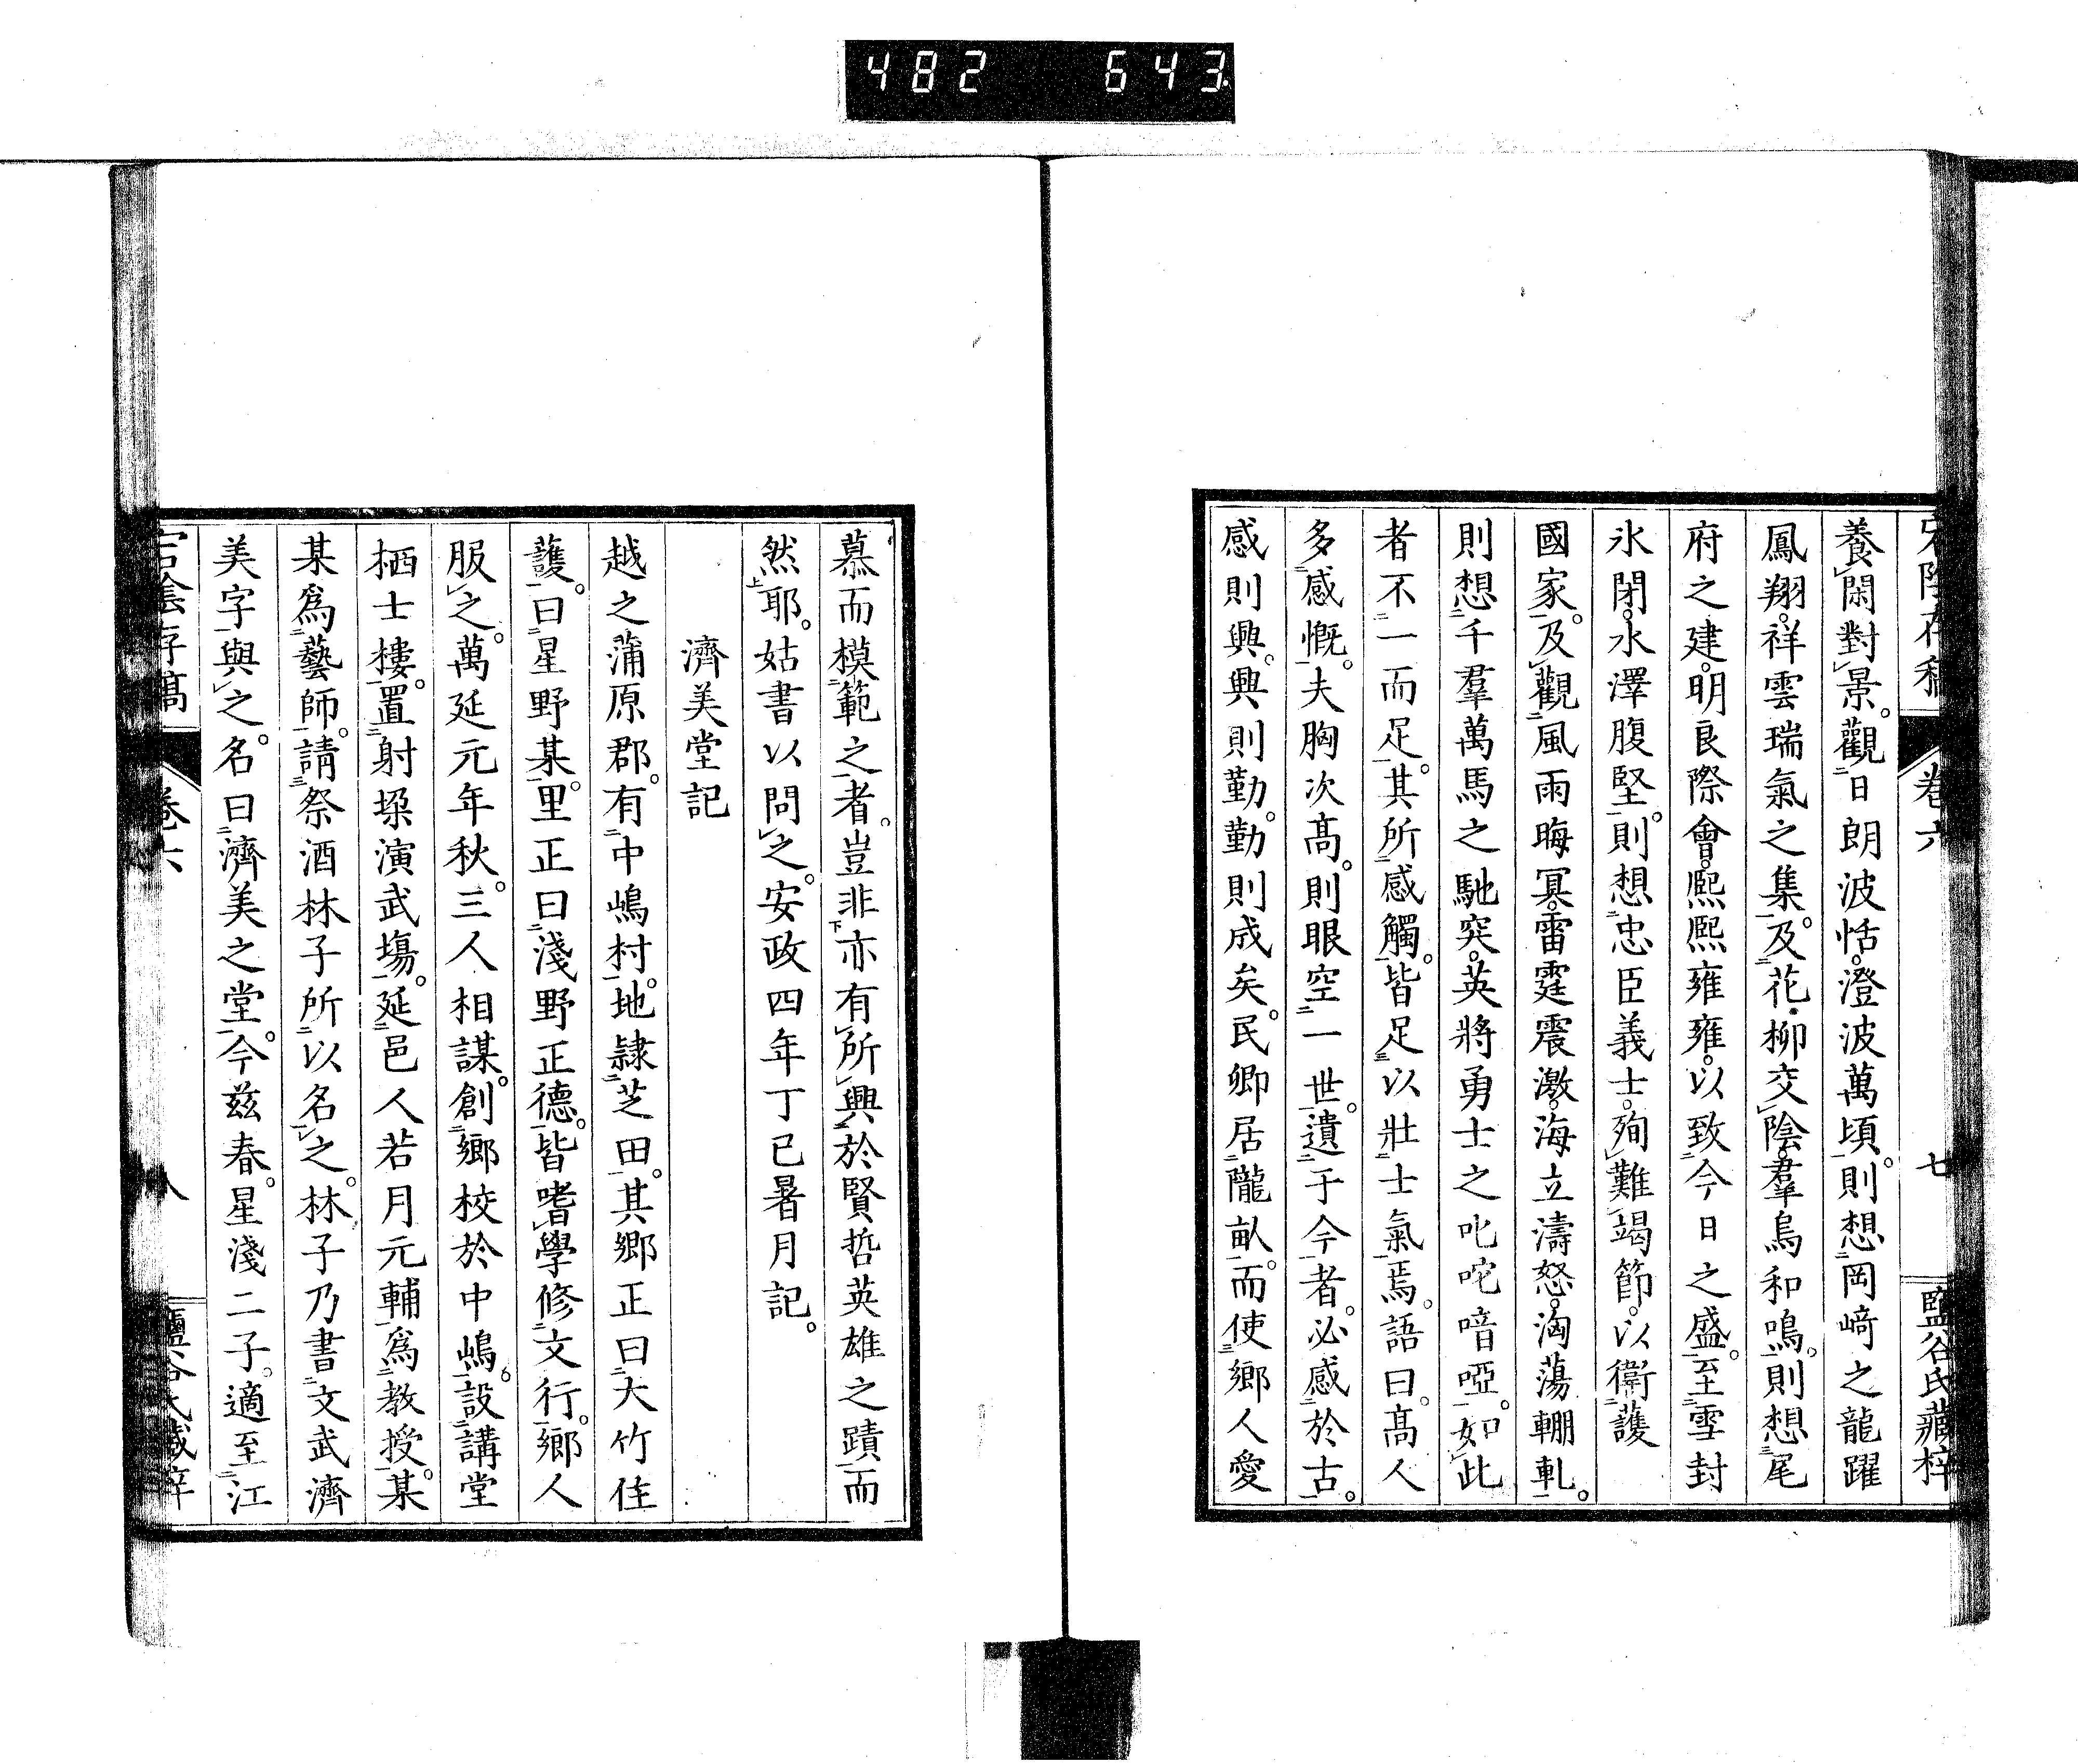 482 643
宕陰存稿 卷六 七 鹽谷氏藏梓
養閑對景。觀日朗波恬。澄波萬頃。則想岡﨑之龍躍
鳳翔。祥雲瑞氣之集。及花柳交陰。羣鳥和鳴。則想尾
府之建。明良際會。熈熈雍雍。以致今日之盛。至雪封
氷閉。水澤腹堅。則想忠臣義士。殉難竭節。以衛護
國家。及觀風雨晦冥。雷霆震激。海立濤怒。洶蕩輣軋。
則想千羣萬馬之馳突。英將勇士之叱咤喑啞。如此
者不一而足。其所感觸。皆足以壯士氣焉。語曰。高人
多感慨。夫胸次高。則眼空一世。遺于今者。必感於古。
感則興。興則勤。勤則成矣。民卿居隴畝。而使鄉人愛
慕而模範之者。豈非亦有所興於賢哲英雄之蹟而
然耶。姑書以問之。安政四年丁巳暑月記。
濟美堂記
越之蒲原郡。有中嶋村。地隷芝田。其鄉正曰大竹佳
護。曰星野某。里正曰淺野正德。皆嗜學修文行。鄉人
服之。萬延元年秋。三人相謀。創鄉校於中嶋。設講堂
栖士樓。置射垜演武塲。延邑人若月元輔爲教授。某
某爲藝師。請祭酒林子所以名之。林子乃書文武濟
美字與之。名曰濟美之堂。今茲春。星淺二子。適至江
宕陰存稿 卷六 八 鹽谷氏藏梓